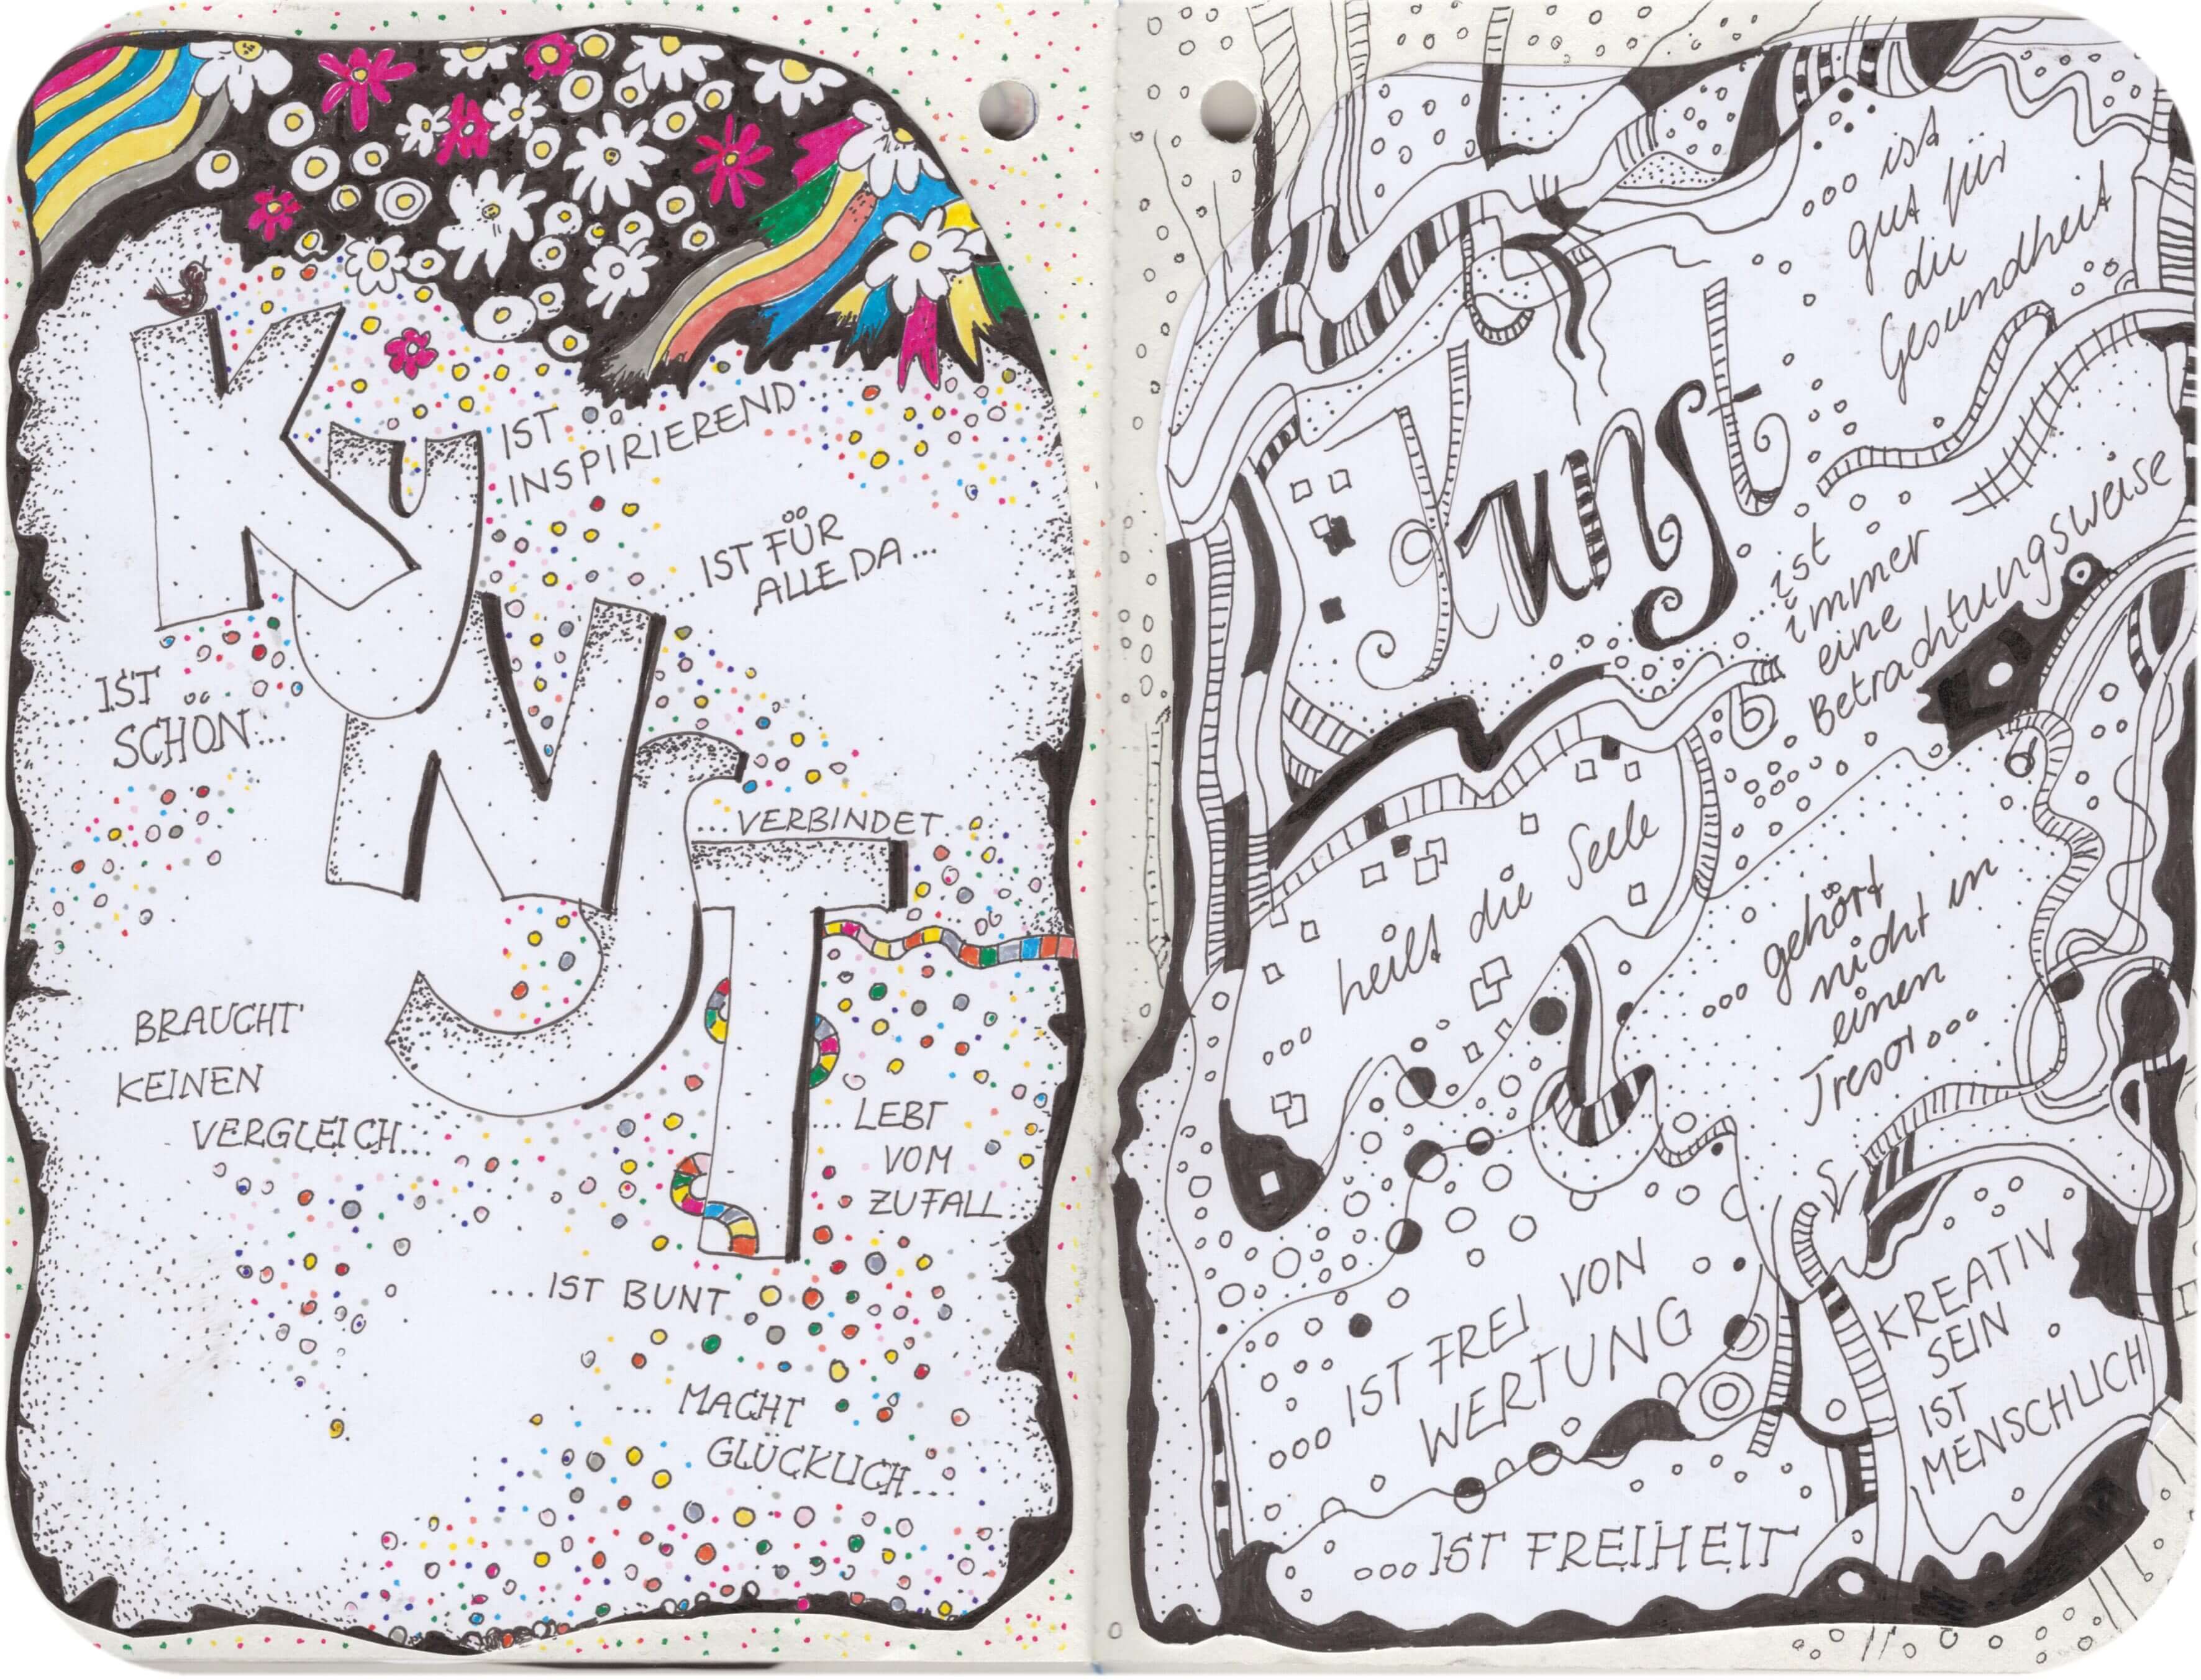 KUNST
IST
INSPIRIEREND
...IST FÜR
ALLE DA...
IST
SCHÖN...
...VERBINDET
BRAUCHT
KEINEN
VERGLEICH...
...LEBT
VOM
ZUFALL...
....IST BUNT
... MACHT
GLÜCKLICH...
Kunst
ooo ist
gut für
die
Gesundheit
...ist
immer
eine
Betrachtungsweise
ooo heilt die Seele
ooo gehört
nicht in
einen
Tresor ooo
ooo IST FREI VON
WERTUNG
KREATIV
SEIN
IST
MENSCHLICH
ooo IST FREIHEIT